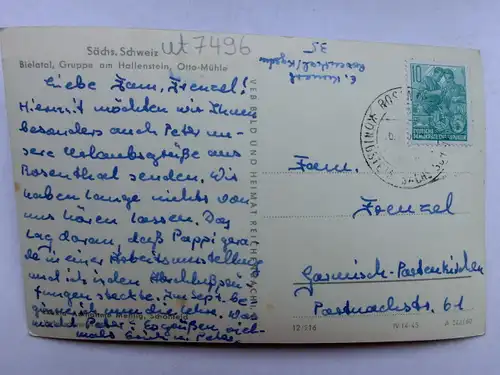 Sächs. Schweiz
Bielatal, Gruppe am Hallenstein, Otto-Mühle
ut7496
Liebe Fam. Frenzel!
Hiermit möchten wir Ihnen
besonders auch Peter un-
sere Urlaubsgrüße aus
Rosenthal senden. Wir
haben lange nichts von
uns hören lassen. Das
lag daran, daß Pappi gera-
de in einer Arbeitsumstellung
und ich in den Abschlußprü-
fungen steckte. Im Sept. be-
ginnt nun die Lehre. Was
macht Peter?
mals
VEB BILD UND HEIMAT REICHENBACH
35
10
DEUTSCHE
DEMOKRATISCHE REPUBLIK
KÖNIGSTEIN
SÄCHS SCHW
Fam.
Frenzel
Garmisch-Partenkirchen
Postnachstr. 61
12/316
IV-14-45